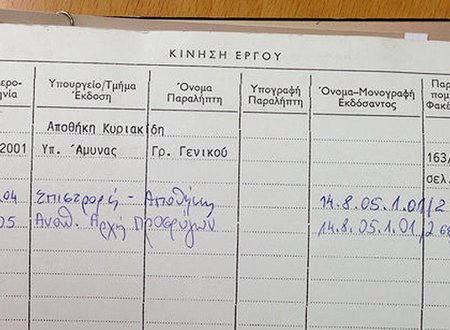 ΚΙΝΗΣΗ ΕΡΓΟΥ
ερο-
ηνία
Υπουργείο/Τμήμα
Έκδοση
Όνομα
Παραλήπτη
Υπογραφή
Παραλήπτη
Όνομα–Μονογραφή
Εκδόσαντος
Παρ
πομ
Φακέ
Αποθήκη Κυριακίδη
2001 Υπ. Άμυνας Γρ. Γενικού 163/
σελ.
04 Επιστροφή - Αποθήκη 14.8.05.1.01/2
05 Αναπ. Αρχή Προσφύγων 14.8.05.1.01/2 σε